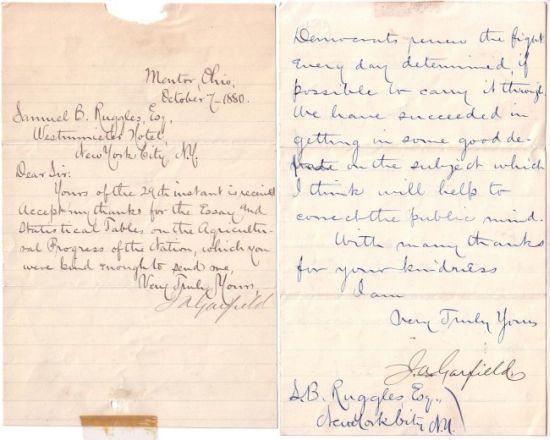 Mentor, Ohio,
October 7-1880.
Samuel B. Ruggles, Esq,
Westminster Hotel,
New York City, N.Y.
Dear Sir:
Yours of the 29th instant is received
Accept my thanks for the Essay and
Statistical Tables on the Agricultu-
ral Progress of the Nation, which you
were kind enough to send me,
Very Truly Yours,
J A Garfield
Democrats renew the fight
every day determined, if
possible to carry it through
We have succeeded in
getting in some good de-
on the subject which
I think will help to
correct the public mind.
With many thanks
for your kindness
I am
Very Truly Yours
J. A. Garfield.
S. B. Ruggles Esq.,
New York City N.Y.